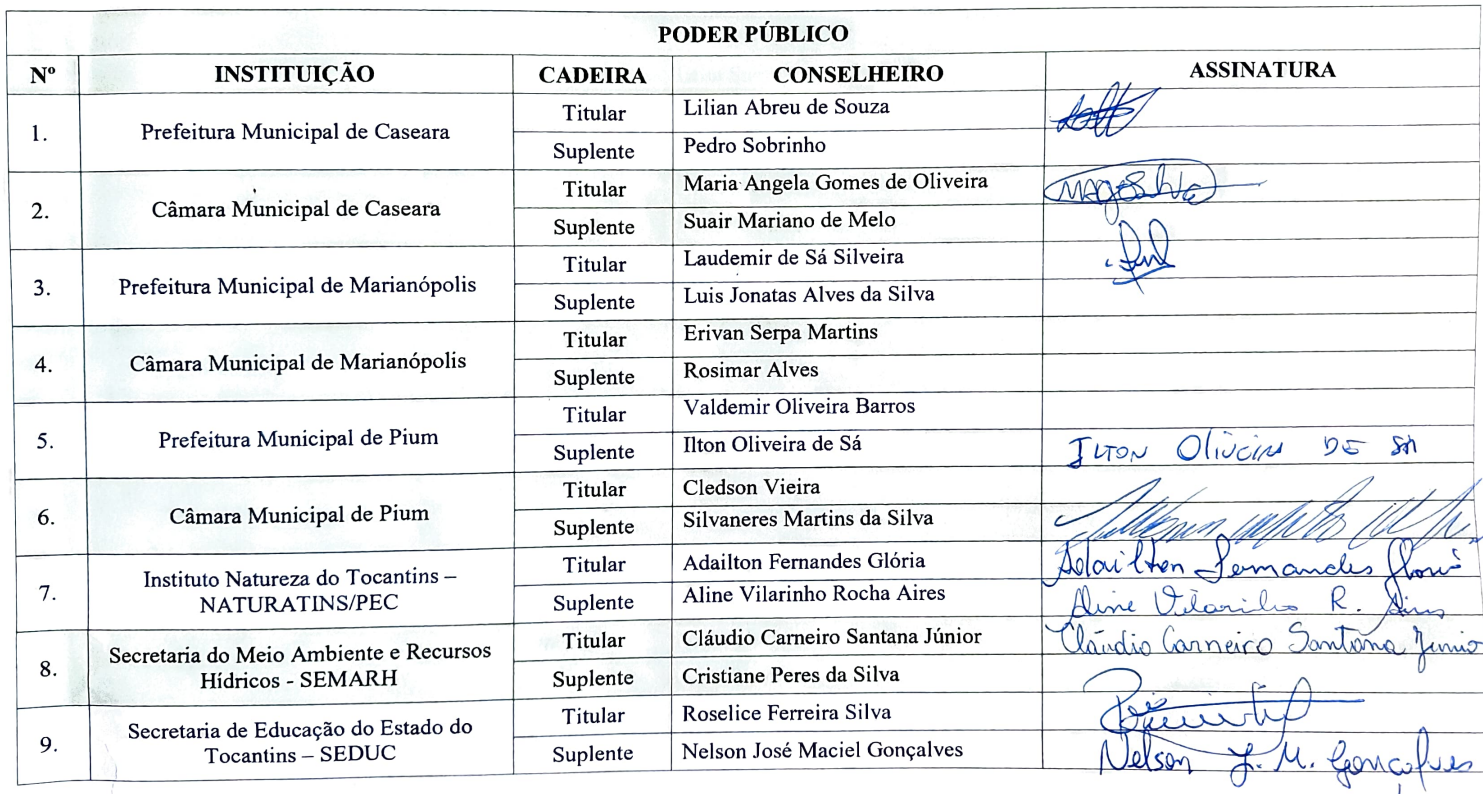 PODER PÚBLICO
Nº INSTITUIÇÃO CADEIRA CONSELHEIRO ASSINATURA
1. Prefeitura Municipal de Caseara
Titular Lilian Abreu de Souza
Suplente Pedro Sobrinho
2. Câmara Municipal de Caseara
Titular Maria Angela Gomes de Oliveira
Suplente Suair Mariano de Melo
3. Prefeitura Municipal de Marianópolis
Titular Laudemir de Sá Silveira
Suplente Luis Jonatas Alves da Silva
4. Câmara Municipal de Marianópolis
Titular Erivan Serpa Martins
Suplente Rosimar Alves
5. Prefeitura Municipal de Pium
Titular Valdemir Oliveira Barros
Suplente Ilton Oliveira de Sá ILTON DE SÁ
6. Câmara Municipal de Pium
Titular Cledson Vieira
Suplente Silvaneres Martins da Silva
7. Instituto Natureza do Tocantins –
NATURATINS/PEC
Titular Adailton Fernandes Glória Adailton Fernandes Glória
Suplente Aline Vilarinho Rocha Aires Aline Vilarinho R. Aires
8. Secretaria do Meio Ambiente e Recursos
Hídricos - SEMARH
Titular Cláudio Carneiro Santana Júnior Cláudio Carneiro Santana Junio
Suplente Cristiane Peres da Silva
9. Secretaria de Educação do Estado do
Tocantins – SEDUC
Titular Roselice Ferreira Silva
Suplente Nelson José Maciel Gonçalves Nelson J. M. Gonçalves